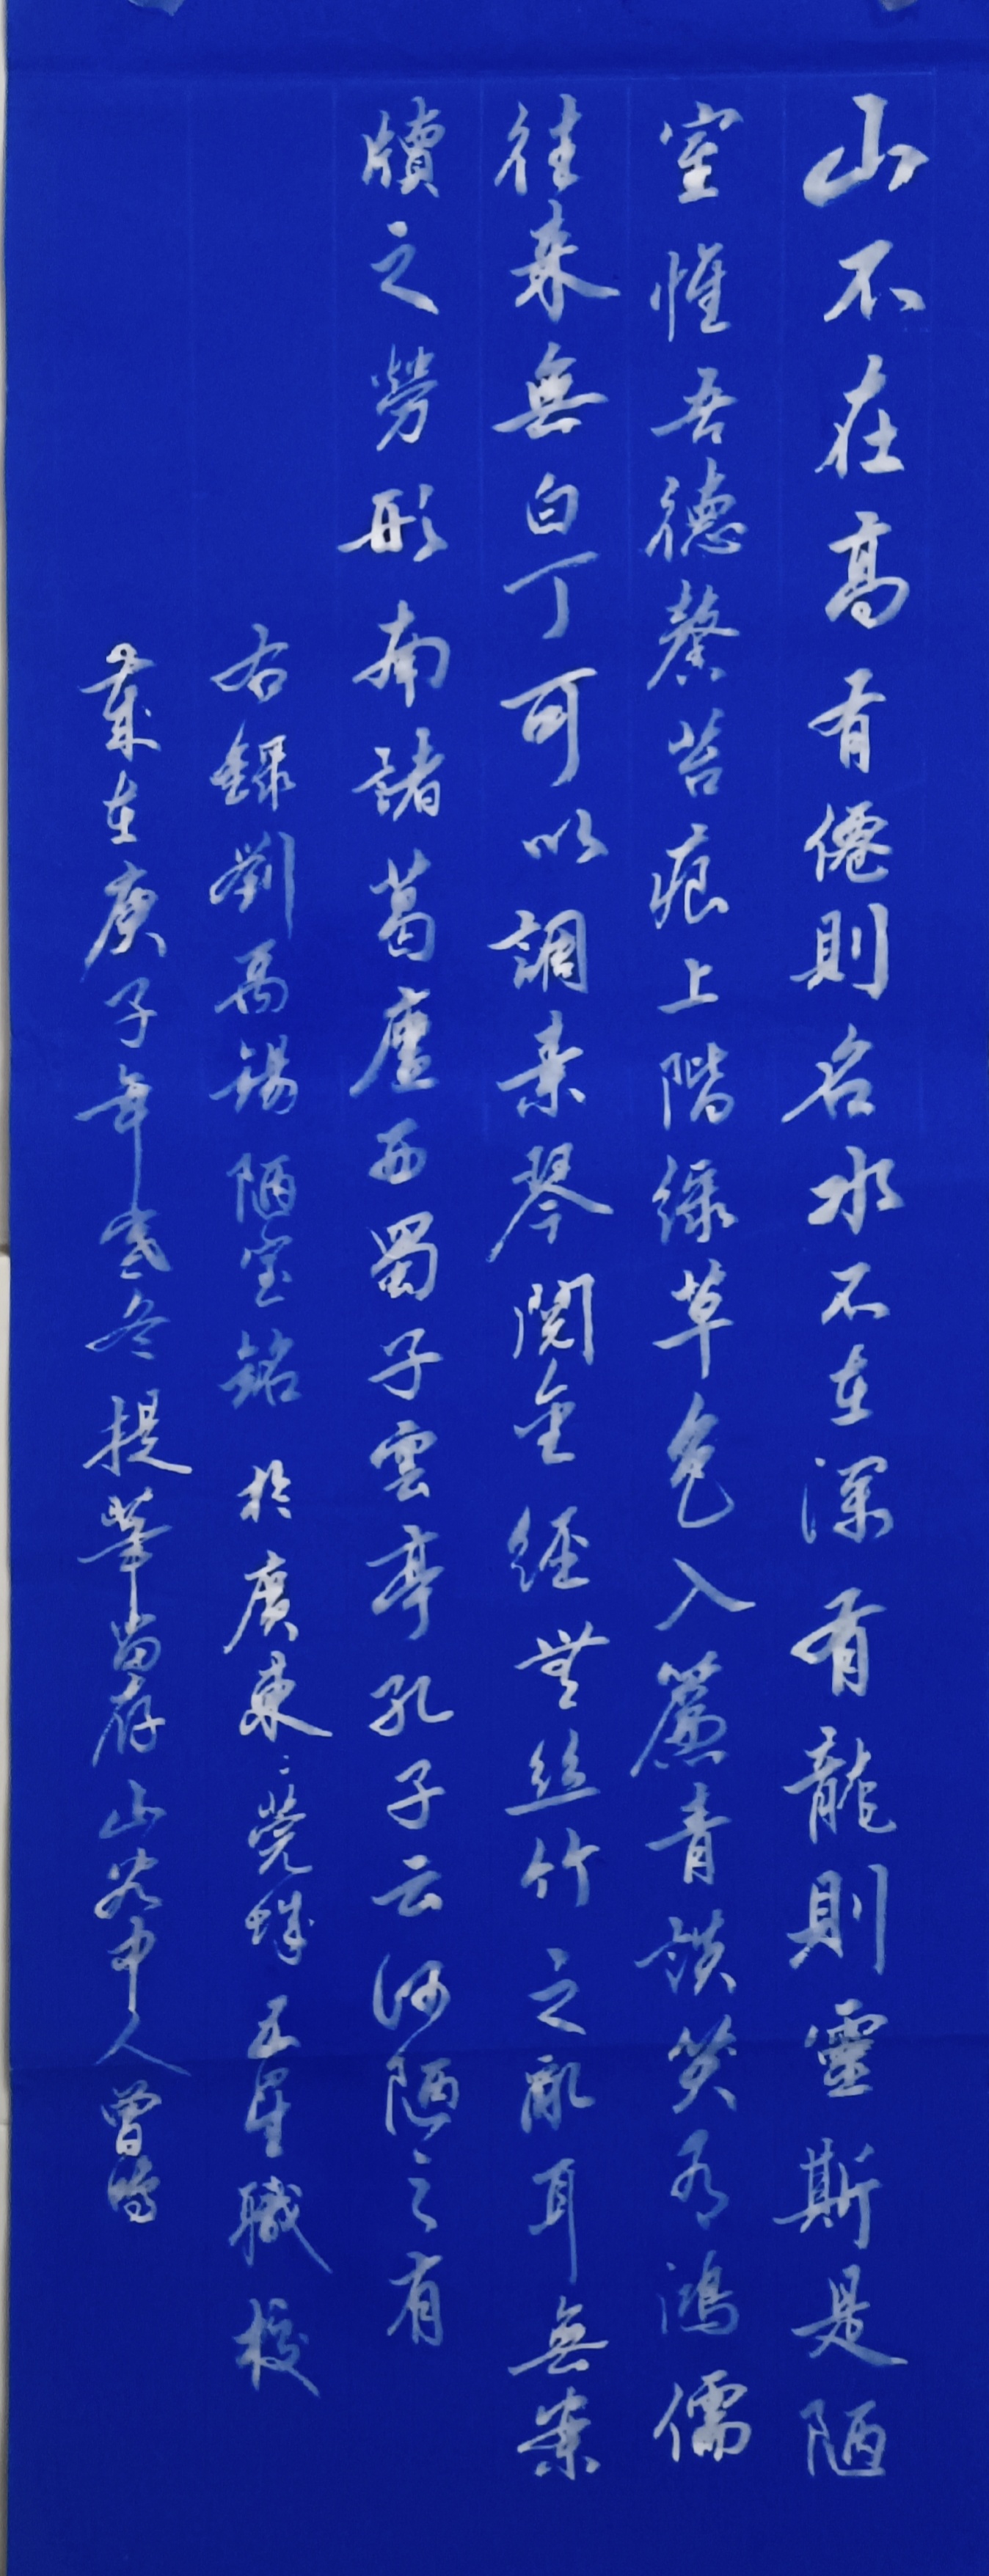 山不在高有僊則名水不在深有龍則靈斯是陋
室惟吾德馨苔痕上階綠草色入簾青談笑有鴻儒
往来無白丁可以調素琴閱金經無丝竹之亂耳無案
牘之勞形南諸葛廬西蜀子雲亭孔子云何陋之有
右錄劉禹锡陋室銘於廣東東莞城五星職校
歲在庚子年冬提筆留存山谷中人曾